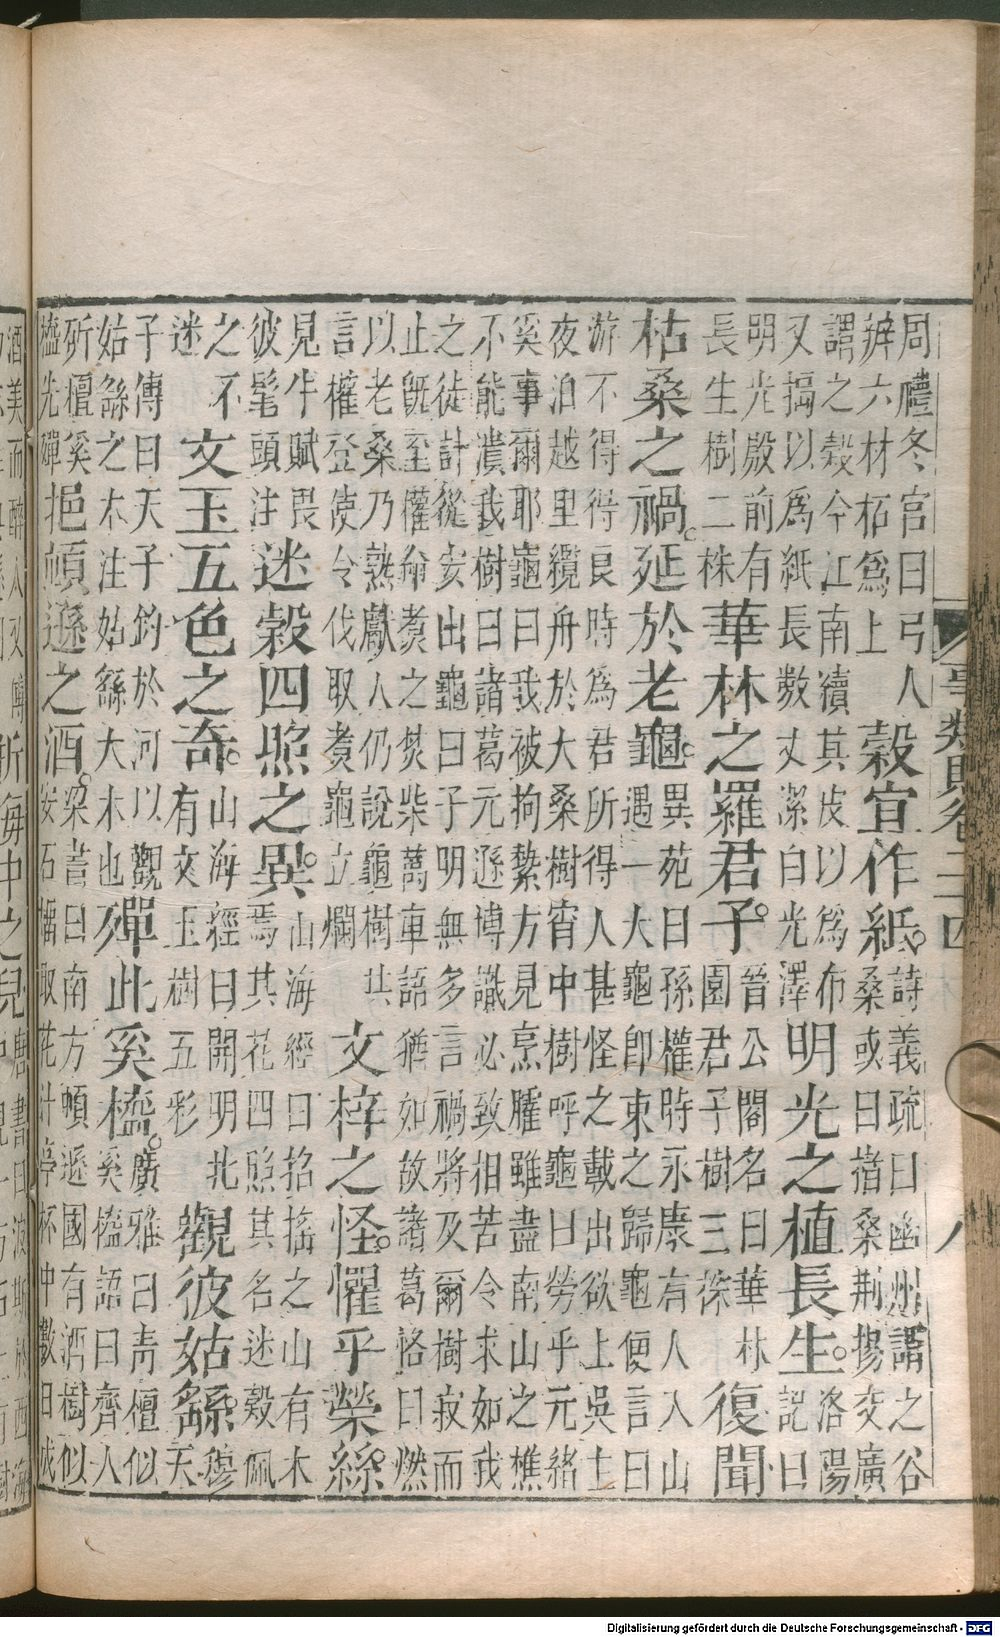 周禮冬官曰弓人
辨六材柘爲上
榖宜作紙。
詩義疏曰幽州謂之谷
桑或曰楮桑荆揚交廣
謂之榖今江南續其皮以爲布
又搗以爲紙長數丈潔白光澤
明光之植長生。
洛陽
記曰
明光殿前有
長生樹二株
華林之羅君子。
晉公閣名曰華林
園君子樹三株
復聞
枯桑之禍。延於老龜。
異苑曰孫權時永康有人入山
遇一大龜即束之歸龜便言曰
游不得得良時爲君所得人甚怪之載出欲上吳王
夜泊越里纜舟於大桑樹宵中樹呼龜曰勞乎元緒
奚事爾耶龜曰我被拘縶方見烹臛雖盡南山之樵
不能潰我樹曰諸葛元遜博識必致相苦令求如我
之徒計從安出龜曰子明無多言禍將及爾樹寂而
止旣至權命煑之焚柴萬車語猶如故諸葛恪曰燃
以老桑乃熟獻人仍說龜樹共
言權登使令伐取煑龜立爛
文梓之怪。懼乎縈絲。
見牛賦畏
彼髦頭注
迷榖四照之異。
山海經曰招搖之山有木
焉其花四照其名迷榖佩
之不
迷
文玉五色之奇。
山海經曰開明北
有文玉樹五彩
觀彼姑繇。
穆
天
子傳曰天子釣於河以觀
姑繇之木注姑繇大木也
殫此奚橀。
廣雅曰青檀似
奚橀語曰齊人
斫檀奚
橀先殫
挹頓遜之酒。
梁書曰南方頓遜國有酒樹似
安石榴取花汁停杯中數日成
事類賦卷二十四
八
Digitalisierung gefördert durch die Deutsche Forschungsgemeinschaft - DFG